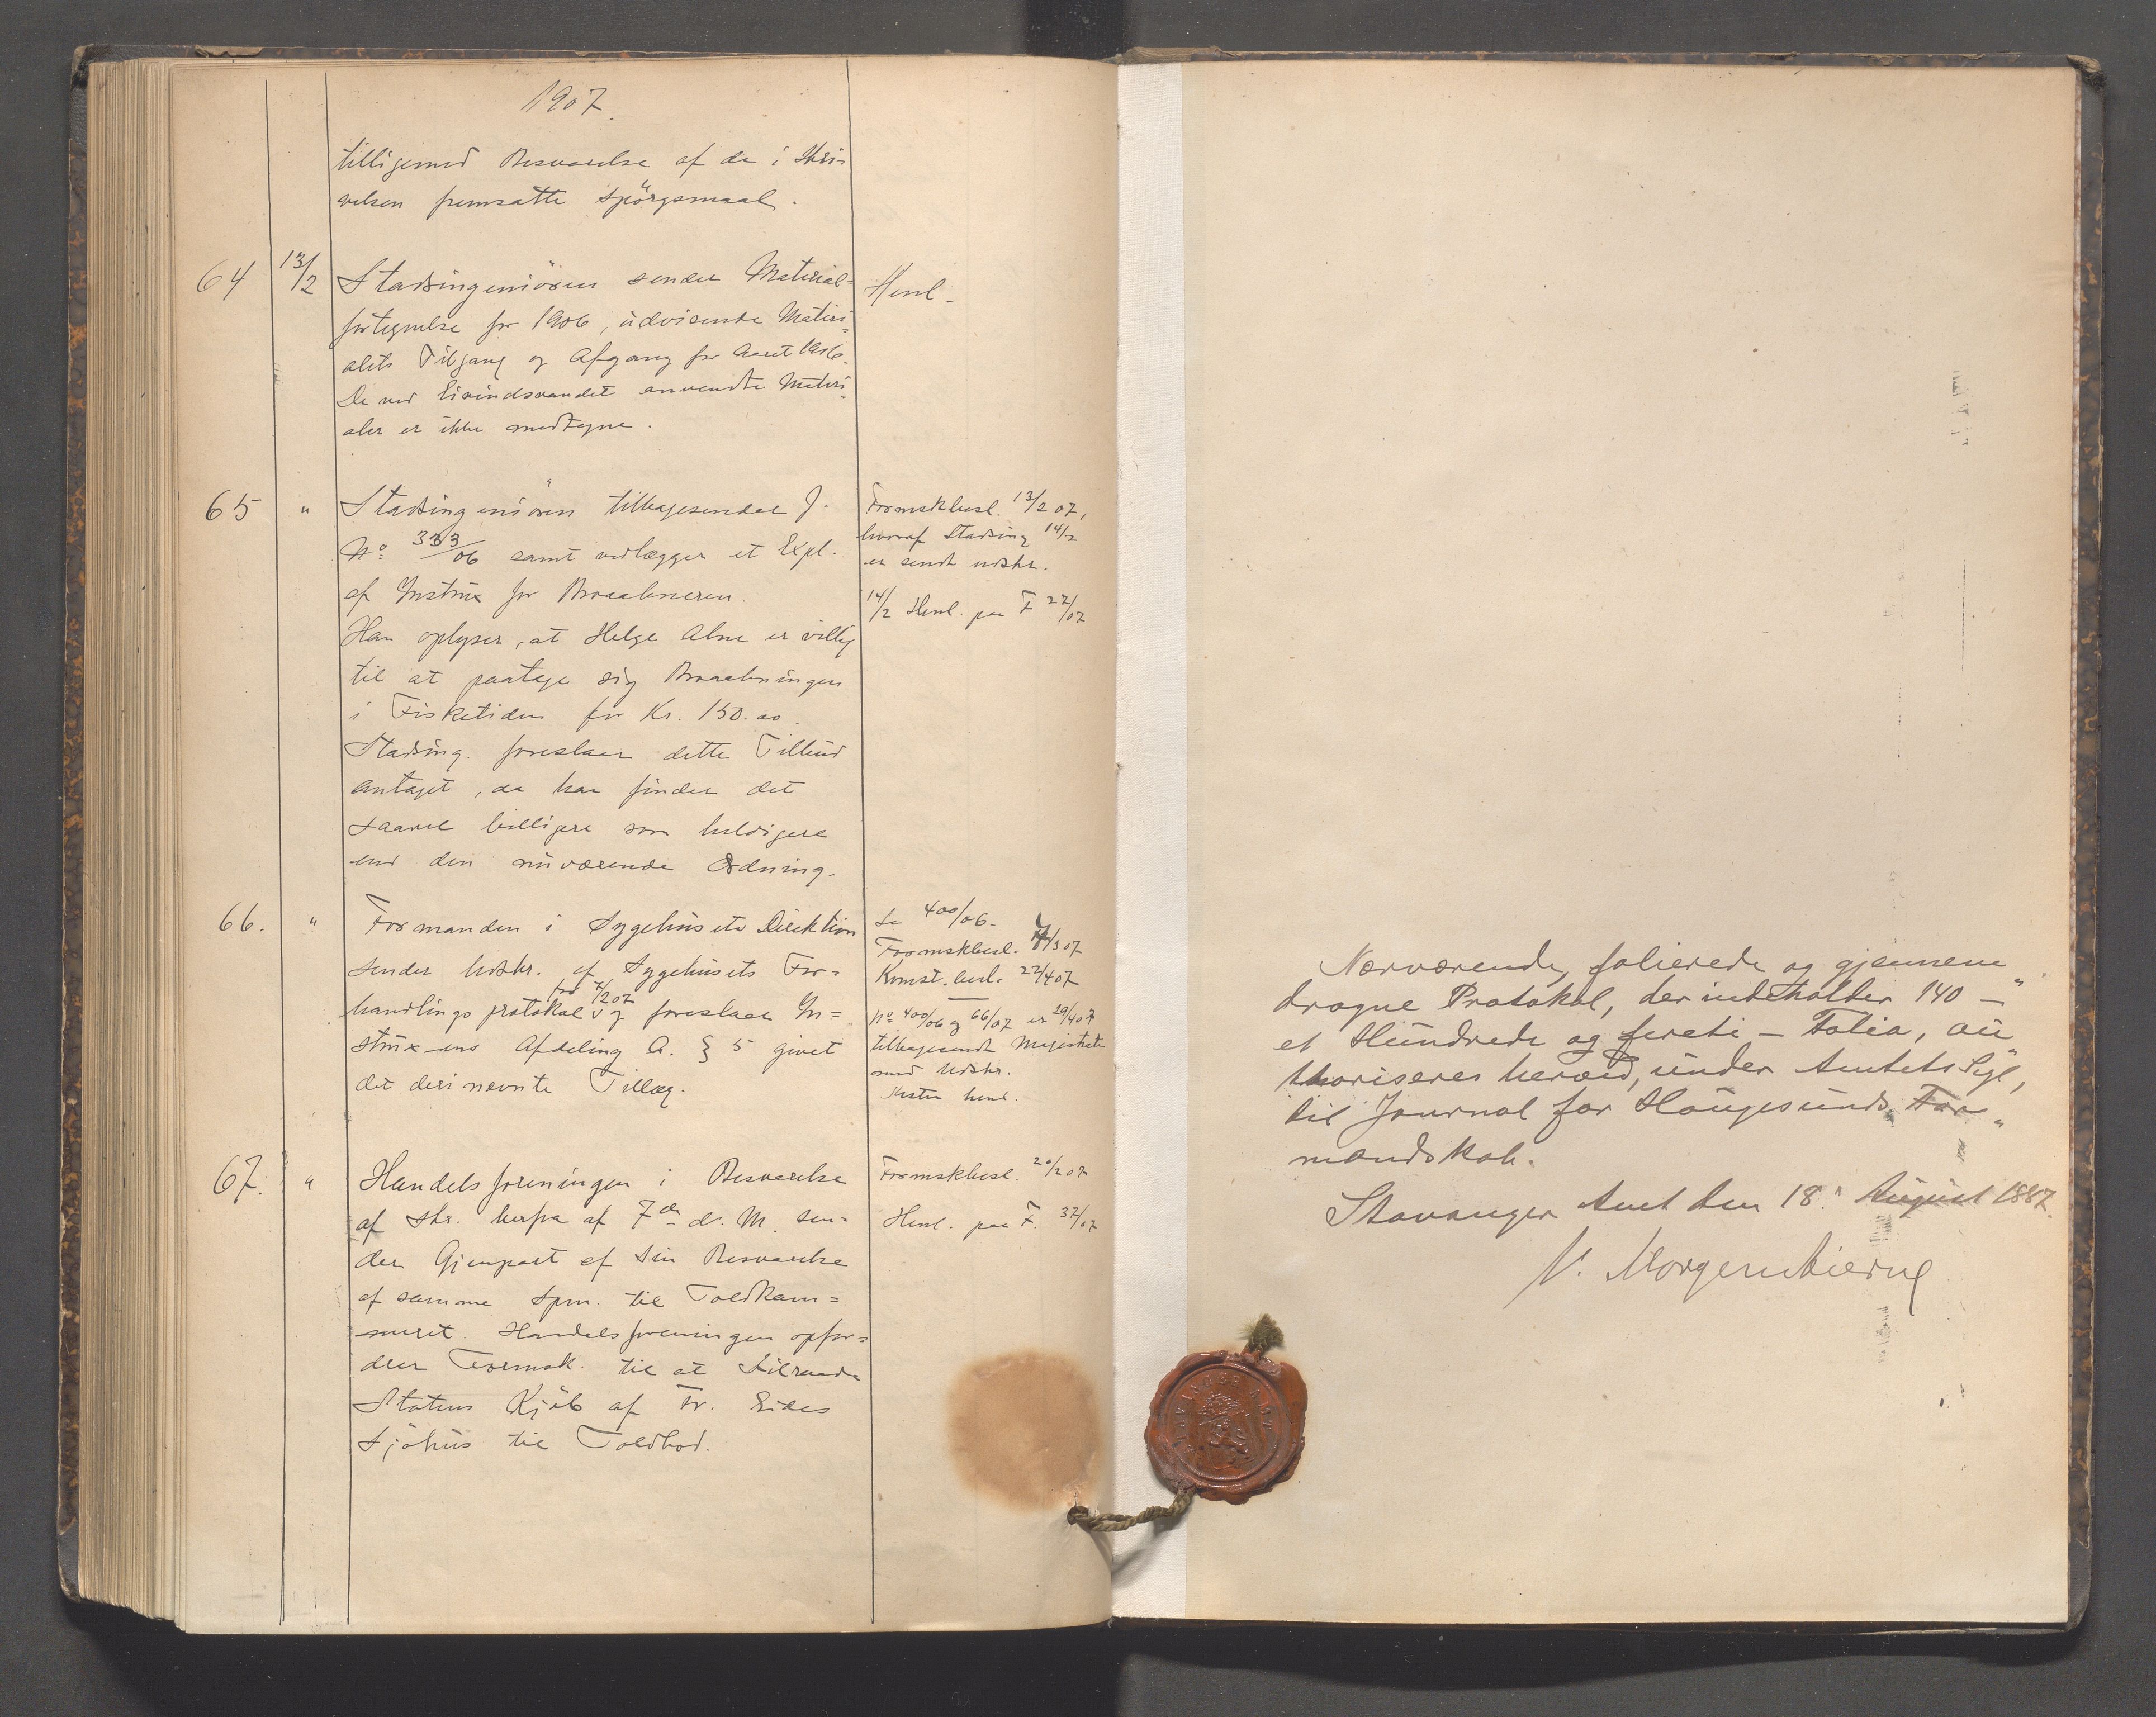 1907.
tilligemed Besvarelse af de i Skri-
velsen fremsatte Spörgsmaal.
64 13/2 Stadsingeniören sender Material=
fortegnelse for 1906, udvisende Materi=
alets Tilgang og Afgang for Aaret 1906.
De ved Eivindsvandet anvendte Materi=
aler er ikke medtagne.
Henl.
65 " Stadsingeniören tilbagesender J.
No. 333/06 samt vedlægger et Expl.
af Instrux for Braakeren.
Han oplyser, at Helge Alne er villig
til at paatage sig Braakningen
i Fisketiden for Kr. 150.00.
Stadsing. foreslaar dette Tilbud
antaget, da han finder det
saavel billigere som heldigere
end den nuværende Ordning.
Formskbesl. 13/2 07,
hvoraf Stadsing 14/2
er sendt udskr.
14/2 Henl. paa F 22/07
66. " Formanden i Sygehusets Direktion
sender Udskr. af Sygehusets For=
handlingsprotokol fra 7/2 07 og foreslaar In=
strux-ens Afdeling A. § 5 givet
det deri nevnte Tillæg.
Se 400/06.
Formskbesl. /3 07
Komst. besl. 22/4 07
No 400/06 og 66/07 er 29/4 07
tilbagesendt Magistraten
med Udskr.
Resten henl.
67. " Handelsforeningen i Besvarelse
af Skr. herfra af 7de d. M. sen-
der Gjenpart af sin Besvarelse
af samme Spm. til Toldkam=
meret. Handelsforeningen opfor=
drer Formsk. til at tilraade
Statens Kjöb af Fr. Eides
Sjöhus til Toldbod.
Formskbesl. 20/2 07
Henl. paa F. 37/07
Nærværende, folierede og gjennem"
dragne Protokol, der indeholder 140 –
et Hundrede og fireti – Folia, au
thoriseres herved, under Amtets Segl,
til Journal for Haugesunds For"
mandskab.
Stavanger Amt den 18. August 1887.
V. Morgenstierne
STAVANGER AMT